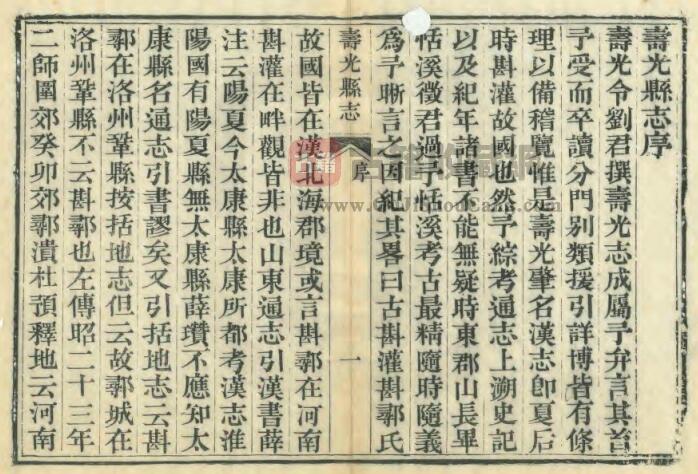 壽光縣志序
壽光令劉君撰壽光志成屬予弁言其首
予受而卒讀分門別類援引詳博皆有條
理以備稽覽惟是壽光肇名漢志卽夏后
時斟灌故國也然予綜考通志上溯史記
以及紀年諸書不能無疑時東郡山長畢
恬溪徵君過予恬溪考古最精隨時隨義
爲予晰言之因紀其畧曰古斟灌斟鄩氏
壽光縣志
序
一
故國皆在漢北海郡境或言斟鄩在河南
斟灌在畔觀皆非也山東通志引漢書薛
注云陽夏今太康縣太康所都考漢志淮
陽國有陽夏縣無太康縣薛瓚不應知太
康縣名通志引書謬矣又引括地志云斟
鄩在洛州鞏縣按括地志但云故鄩城在
洛州鞏縣不云斟鄩也左傳昭二十三年
二師圍郊癸卯郊鄩潰杜預釋地云河南
www.GuJiShouCang.com